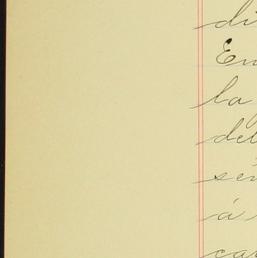 di
En
la
del
sen
á
car